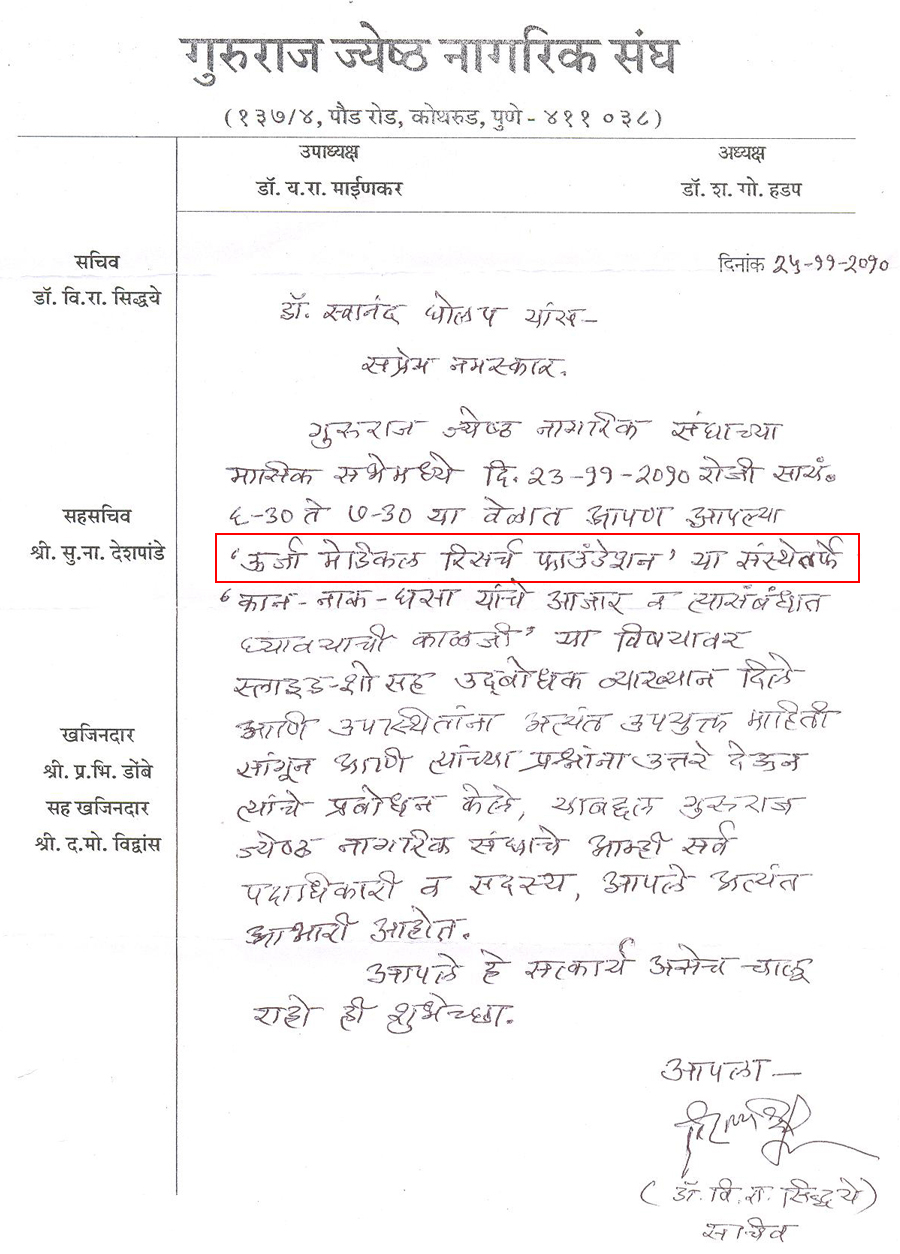 गुरुराज ज्येष्ठ नागरिक संघ
(१३७/४, पौड रोड, कोथरुड, पुणे - ४११ ०३८)
उपाध्यक्ष
डॉ. य.रा. माईणकर
अध्यक्ष
डॉ. श. गो. हडप
सचिव
डॉ. वि.रा. सिद्धये
सहसचिव
श्री. सु.ना. देशपांडे
खजिनदार
श्री. प्र.भि. डोंबे
सह खजिनदार
श्री. द.मो. विद्वांस
दिनांक २५-११-२०१०
डॉ. स्वानंद धोलप यांस-
सप्रेम नमस्कार.
गुरुराज ज्येष्ठ नागरिक संघाच्या
मासिक सभेमध्ये दि. २३-११-२०१० रोजी सायं.
६-३० ते ७-३० या वेळात आपण आपल्या
'ऊर्जा मेडिकल रिसर्च फाउंडेशन' या संस्थेतर्फे
'कान-नाक-घसा यांचे आजार व त्यासंबंधात
घ्यावयाची काळजी' या विषयावर
स्लाइड-शो सह उद्‌बोधक व्याख्यान दिले
आणि उपस्थितांना अत्यंत उपयुक्त माहिती
सांगून आणि त्यांच्या प्रश्नांना उत्तरे देऊन
त्यांचे प्रबोधन केले, याबद्दल गुरुराज
ज्येष्ठ नागरिक संघाचे आम्ही सर्व
पदाधिकारी व सदस्य, आपले अत्यंत
आभारी आहोत.
आपले हे सत्कार्य असेच चालू
राहो ही शुभेच्छा.
आपला -
(डॉ. वि. रा. सिद्धये)
सचिव